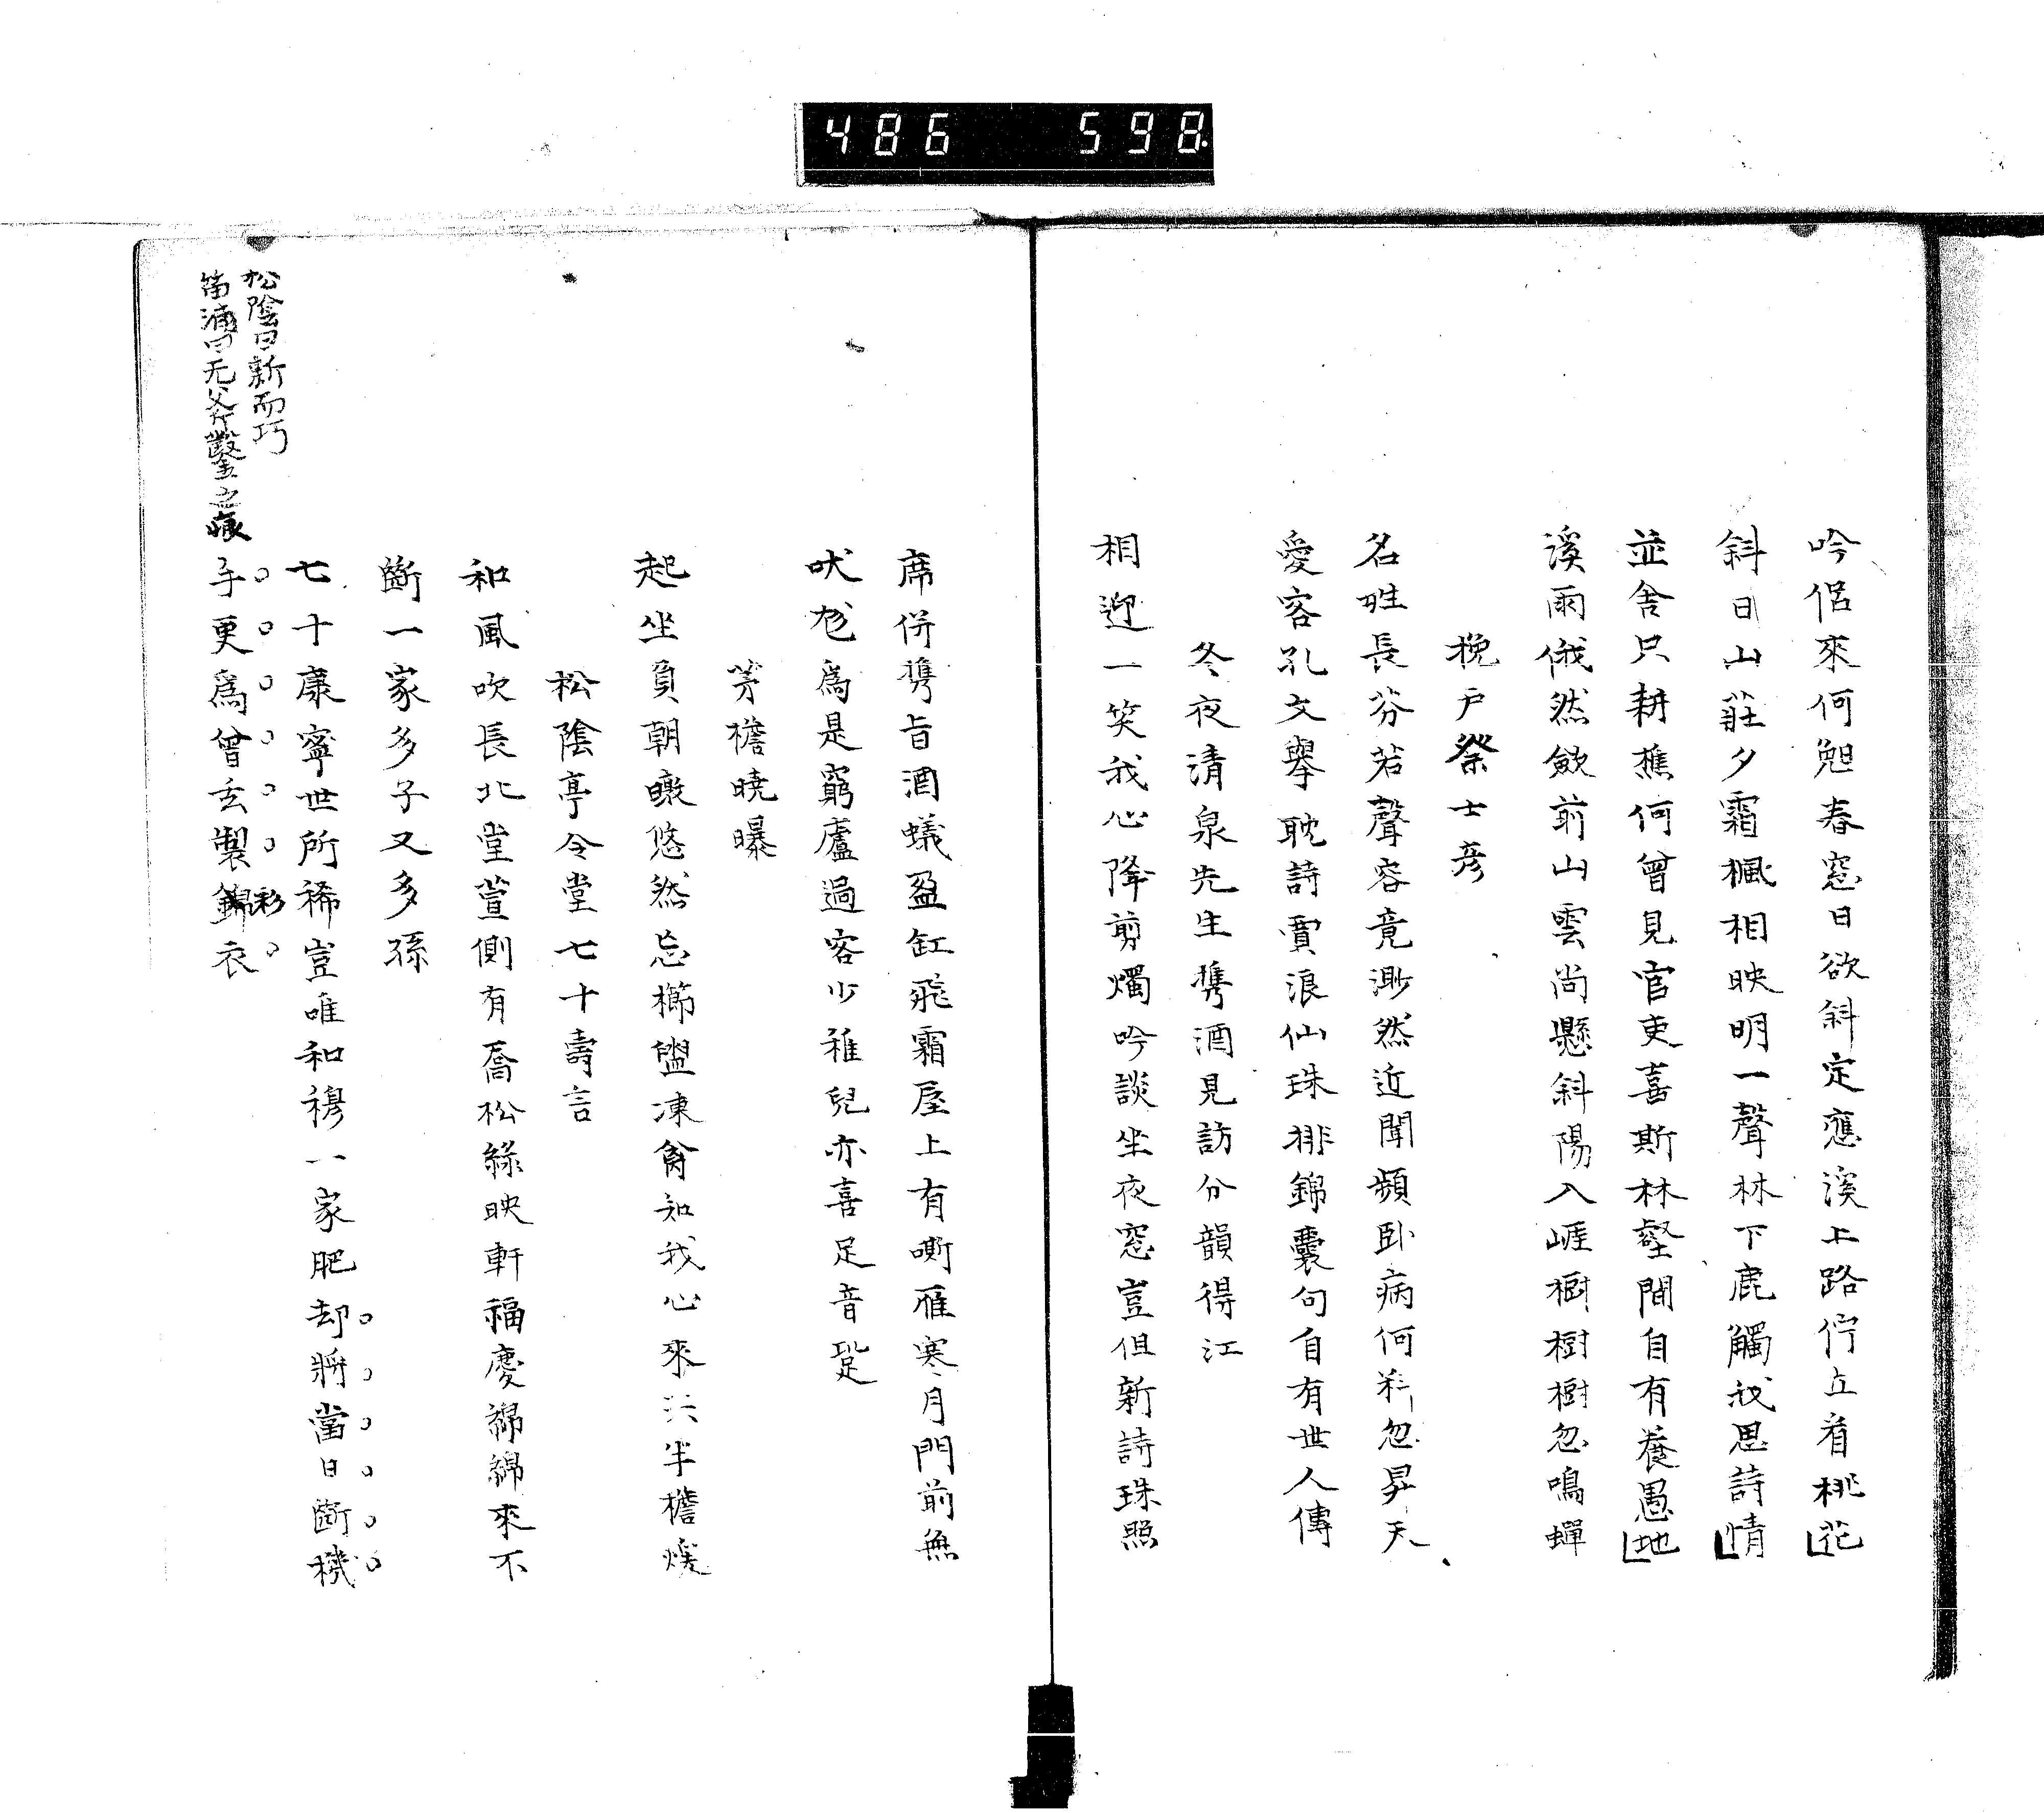 486 598
吟侶來何䫉春窓日欲斜定應溪上路佇立看桃花
斜日山莊夕霜楓相映明一聲林下鹿觸我思詩情
並舍只耕樵何曾見官吏喜斯林壑間自有養愚地
溪雨俄然歛前山雲尚懸斜陽入崕樹樹樹忽鳴蟬
挽戸祭士彦
名姓長芬若聲容竟渺然近聞頻臥病何料忽昇天
愛客孔文擧耽詩賈浪仙珠排錦囊句自有世人傳
冬夜清泉先生携酒見訪分韻得江
相迎一笑我心降剪燭吟談坐夜窓豈但新詩珠照
席併携旨酒蟻盈缸飛霜屋上有嘶雁寒月門前無
吠尨為是窮廬過客少稚兒亦喜足音跫
茅檐曉曝
起坐負朝暾悠然忘櫛盥凍禽知我心來共半檐煖
松陰亭令堂七十壽言
和風吹長北堂萱側有喬松綠映軒福慶綿綿來不
斷一家多子又多孫
七十康寧世所稀豈唯和穆一家肥却將當日斷機
手更為曾玄製錦衣
彩
松陰曰新而巧
笛浦曰无斧鑿之痕